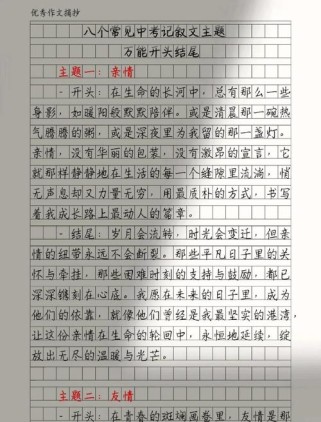 优秀作文摘抄
八个常见中考记叙文主题
万能开头结尾
主题一：亲情
- 开头：在生命的长河中，总有那么一些
身影，如暖阳般默默陪伴。或是清晨那一碗热
气腾腾的粥，或是深夜里为我留的那一盏灯。
亲情，没有华丽的包装，没有激昂的宣言，它
就那样静静地在生活的每一个缝隙里流淌，悄
无声息却又力量无穷，用最质朴的方式，书写
着我成长路上最动人的篇章。
- 结尾：岁月会流转，时光会变迁，但亲
情的纽带永远不会断裂。那些平凡日子里的关
怀与牵挂，那些困难时刻的支持与鼓励，都已
深深镌刻在心底。我愿在未来的日子里，成为
他们的依靠，就像他们曾经是我最坚实的港湾，
让这份亲情在生命的轮回中，永恒地延续，绽
放出无尽的温暖与光芒。
主题二：友情
- 开头：在青春的斑斓画卷里，友情是那